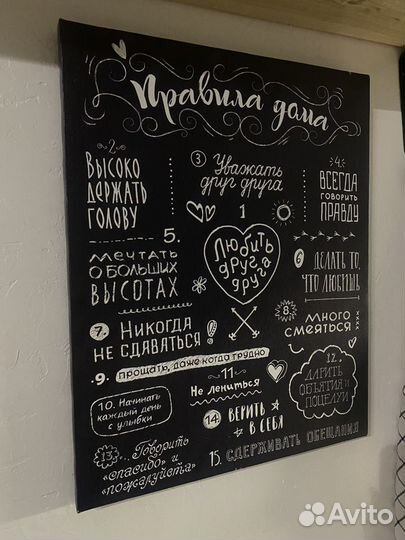 Правила дома
1
Любить
друга
друга
2.
Высоко
держать
голову
3
Уважать
друг друга
4.
Всегда
говорить
правду
5.
Мечтать
о больших
высотах
6
Делать то,
что любишь
7.
Никогда
не сдаваться
8.
Много
смеяться
.9.
прощать, даже когда трудно
10. Начинать
каждый день
с улыбки
11
Не лениться
12.
Дарить
объятия и
поцелуи
13.
Говорить
«спасибо» и
«пожаруйста»
14.
Верить
в себя
15. Сдерживать обещания
Avito